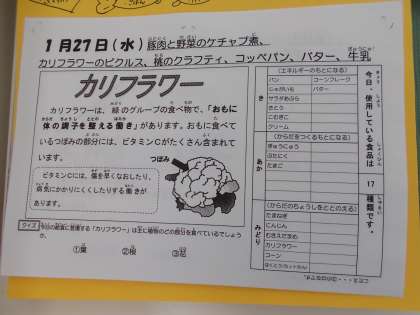 1月27日(水)豚肉と野菜のケチャップ煮、
カリフラワーのピクルス、桃のクラフティ、コッペパン、バター、牛乳
カリフラワー
カリフラワーは、緑のグループの食べ物で、「おもに
体の調子を整える働き」があります。おもに食べて
いるつぼみの部分には、ビタミンCがたくさん含まれて
います。
つぼみ
ビタミンCには、傷を早くなおしたり、
病気にかかりにくくしたりする働きが
あります。
クイズ 今日の給食に登場する「カリフラワー」は主に植物のどの部分を食べているでしょう
か。
①葉 ②枝 ③花
今日、使用している食品は 17 種類です。
き
(エネルギーのもとになる)
パン コーンフレーク
じゃがいも バター
サラダあぶら
さとう
こむぎこ
クリーム
あか
(からだをつくるもとになる)
ぎゅうにゅう
ぶたにく
たまご
みどり
(からだのちょうしをととのえる)
たまねぎ
にんじん
むきえだまめ
カリフラワー
コーン
はくとう(カットかん)